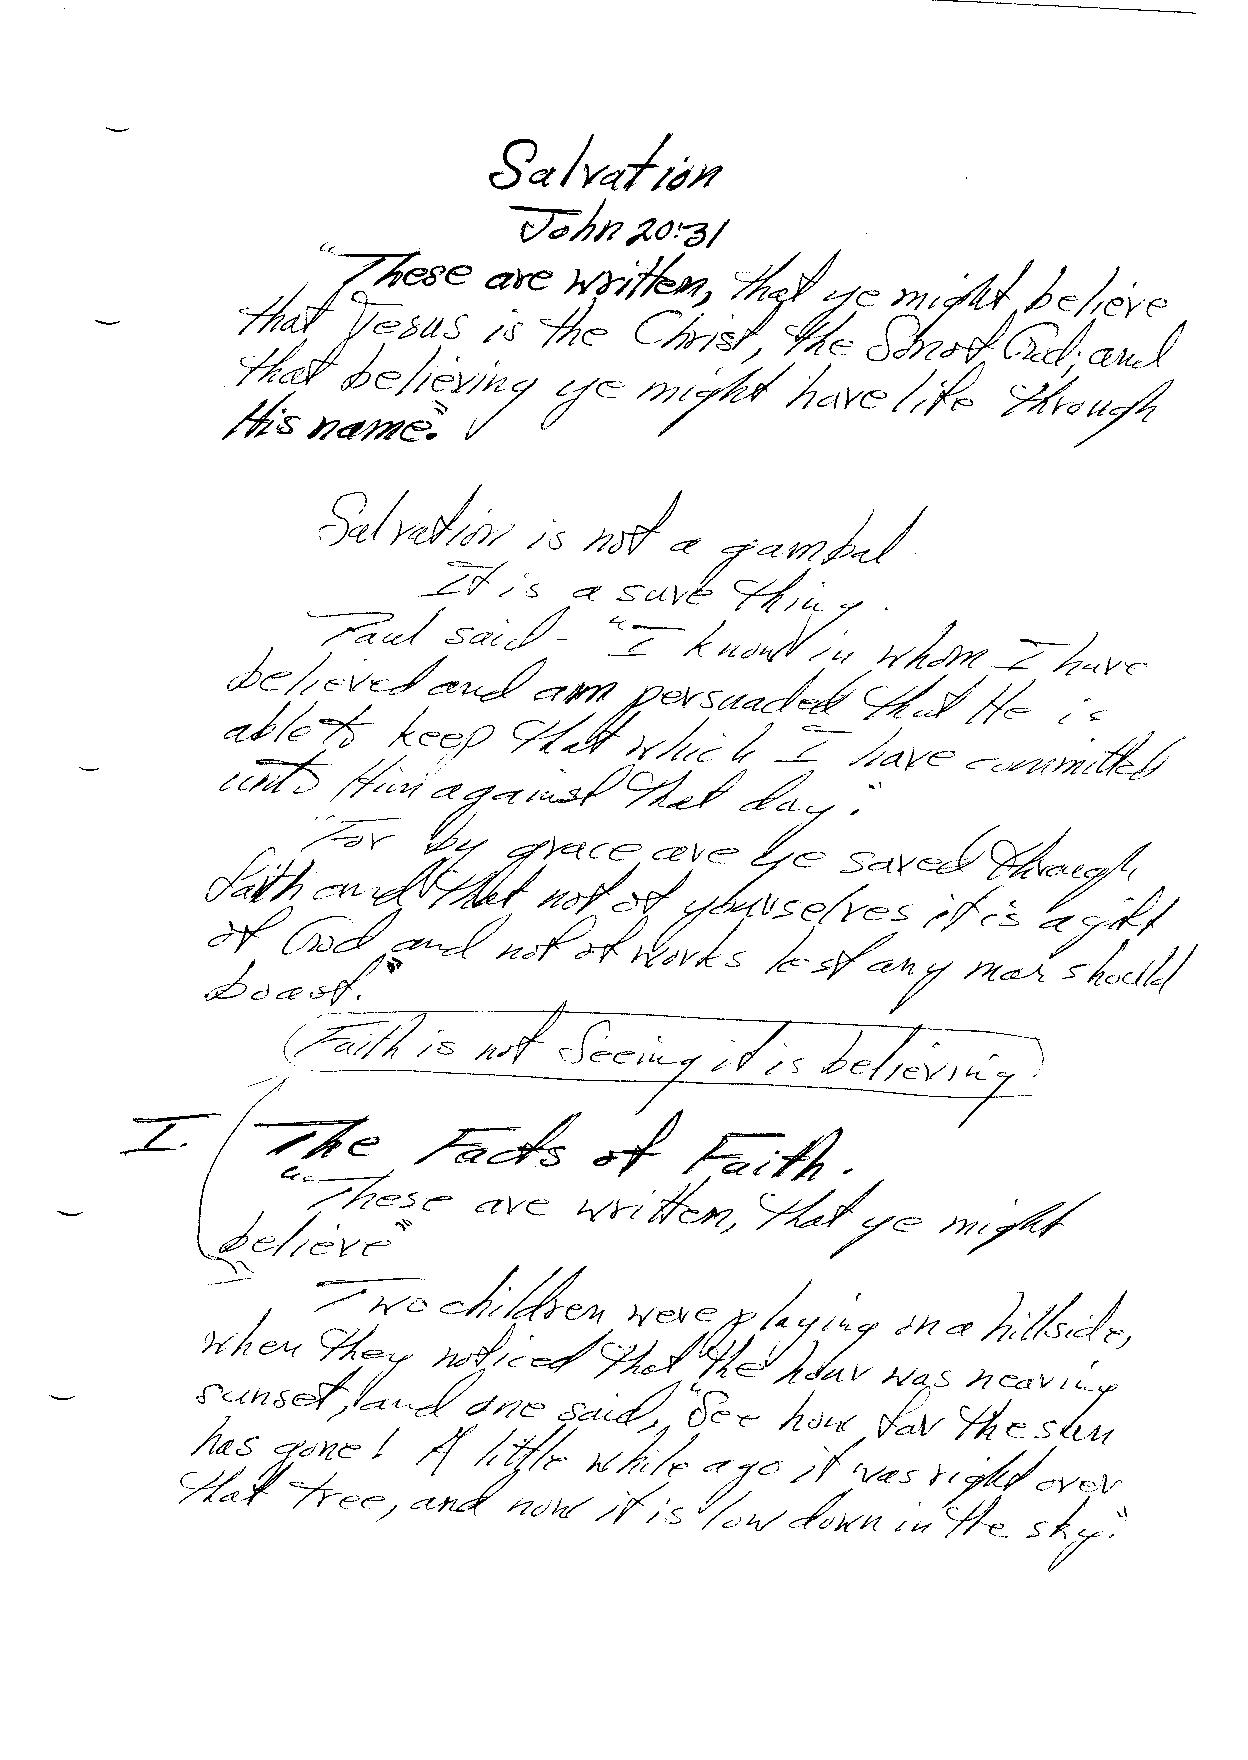 Salvation
John 20:31
"These are written, that ye might believe
that Jesus is the Christ, the Son of God; and
that believing ye might have life through
His name."
Salvation is not a gambal
It is a sure thing.
Paul said - "I know in whom I have
believed and am persuaded that He is
able to keep that which I have committed
unto Him against that day."
"For by grace are ye saved through
faith and that not of yourselves it is a gift
of God and not of works lest any man should
boast."
Faith is not Seeing it is believing
I. The Facts of Faith.
"These are written, that ye might
believe"
Two children were playing on a hillside,
when they noticed that the hour was nearing
sunset, and one said, "See how far the sun
has gone! A little while ago it was right over
that tree, and now it is low down in the sky."